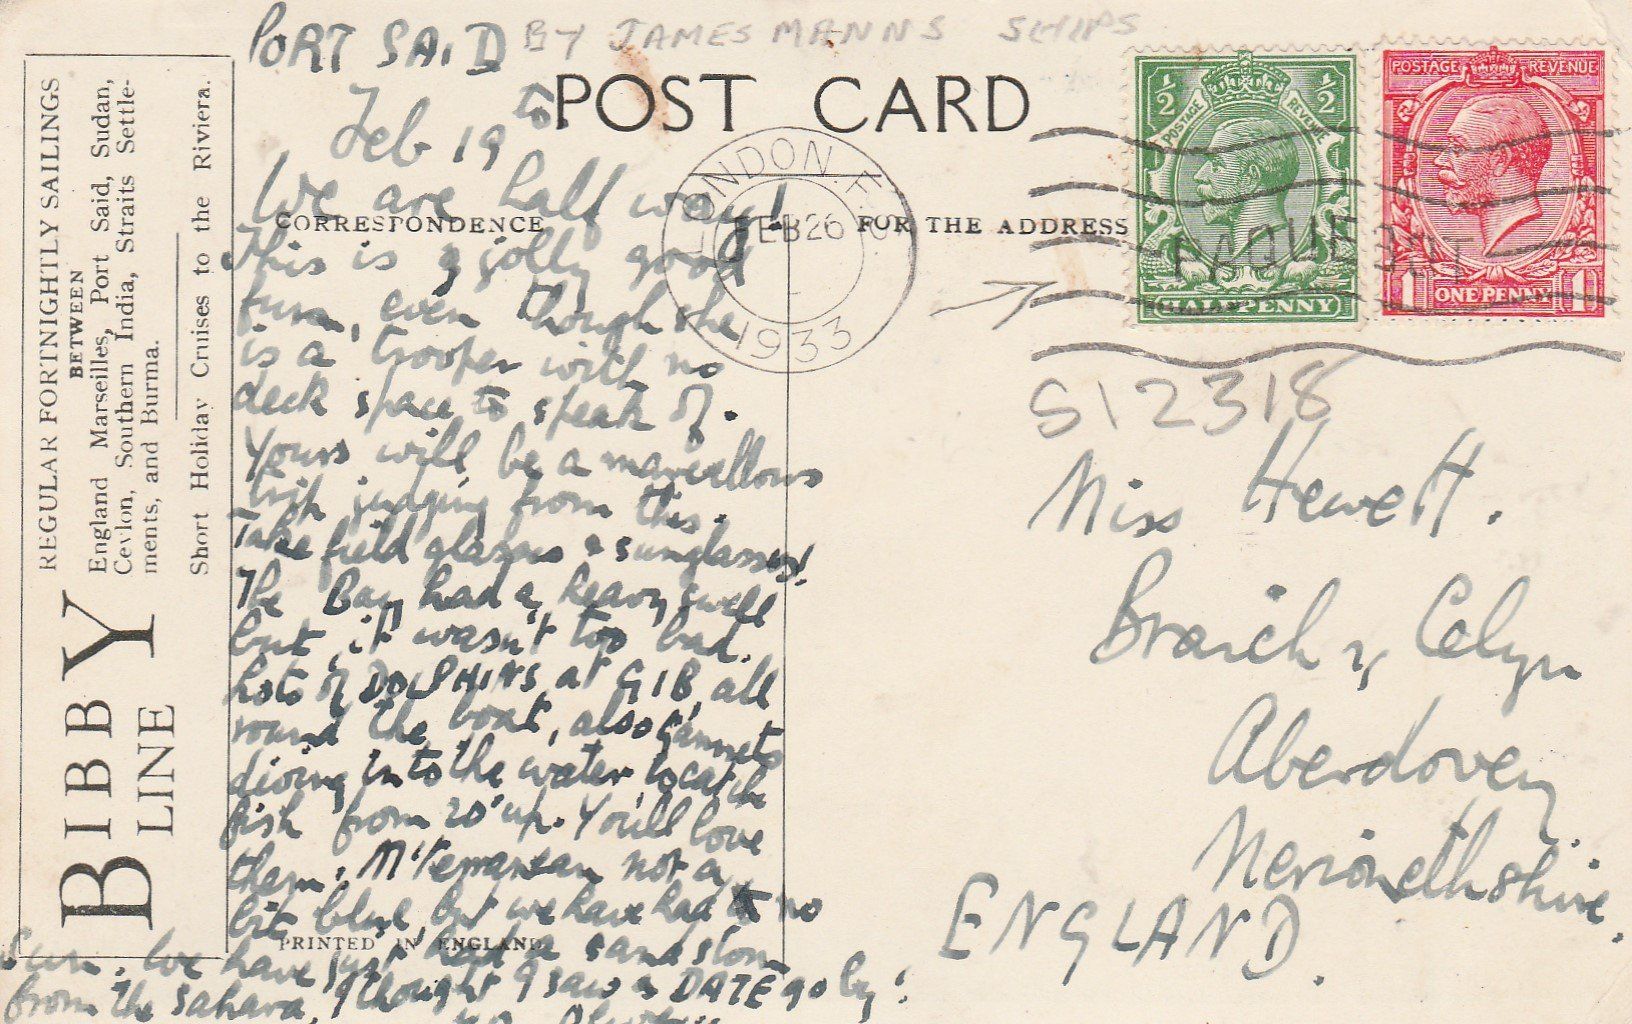 PORT SAID BY JAMES MANNS SHIPS
Feb 19th
POST CARD
We are half way!
CORRESPONDENCE
FOR THE ADDRESS
This is a jolly good
furn, even though she
is a trooper with no
deck space to speak of.
Yours will be a marvellous
trip judging from this.
Take field glasses & sunglasses!
The Bay had a heavy swell
but it wasn't too bad.
Lots of DOLPHINS at GIB, all
round the boat, also Gannets
diving into the water to catch
fish from 20' up. You'll love
them. M'terranean not a
bit blue, but we have had no
PRINTED IN ENGLAND
sun. We have just had a sand storm
from the Sahara, I thought I saw a DATE go by!
LONDON. F.
FEB 26
1933
PAQUEBOT
1/2 1/2
POSTAGE REVENUE
HALFPENNY
POSTAGE REVENUE
1 ONE PENNY 1
S12318
Miss Hewett.
Braich y Celyn
Aberdovey
Merionethshire.
ENGLAND.
BIBBY
LINE
REGULAR FORTNIGHTLY SAILINGS
BETWEEN
England Marseilles, Port Said, Sudan,
Ceylon, Southern India, Straits Settle-
ments, and Burma.
Short Holiday Cruises to the Riviera.